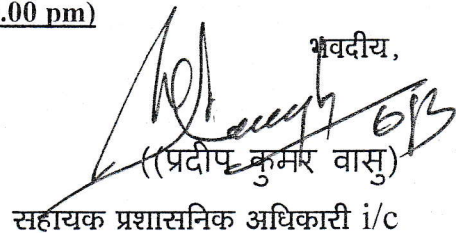 .00 pm)
भवदीय,
((प्रदीप कुमार वासु)
सहायक प्रशासनिक अधिकारी i/c